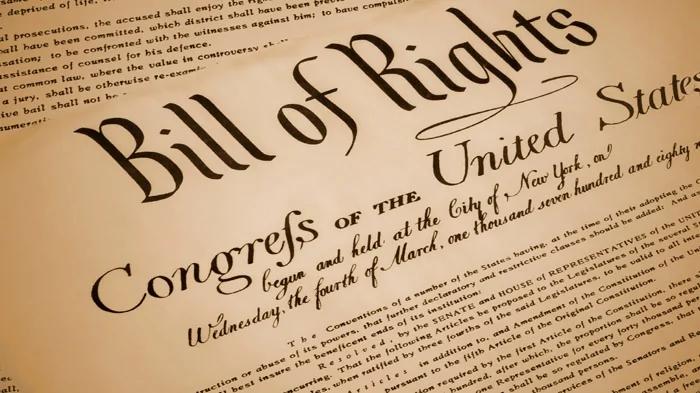 e deprived of life,
al prosecutions, the accused shall enjoy the rig
hall have been committed, which district shall have been previo
sation; to be confronted with the witnesses against him; to have compul
ssistance of counsel for his defence.
at common law, where the value in controversy shall
a jury, shall be otherwise re-exami
ive bail shall not be
numerati
Bill of Rights
Congreſs OF THE United States
begun and held at the City of New York, on
Wednesday, the fourth of March, one thousand seven hundred and eighty n
The Conventions of a number of the States having, at the time of their adopting the C
ruction or abuse of its powers, that further declaratory and restrictive clauses should be added: And as
best insure the beneficent ends of its institution;
Resolved, by the SENATE and HOUSE of REPRESENTATIVES of the UN
ncurring, That the following Articles be proposed to the Legislatures of the several S
les, when ratified by three fourths of the said Legislatures, to be valid to all inte
Articles in addition to, and Amendment of the Constitution of the U
pursuant to the fifth Article of the Original Constitution.
tion required by the first Article of the Constitution, there
hundred, after which, the proportion shall be so regu
one Representative for every forty thousand
all be so regulated by Congress, that
thousand persons.
vices of the Senators and
ment of religion